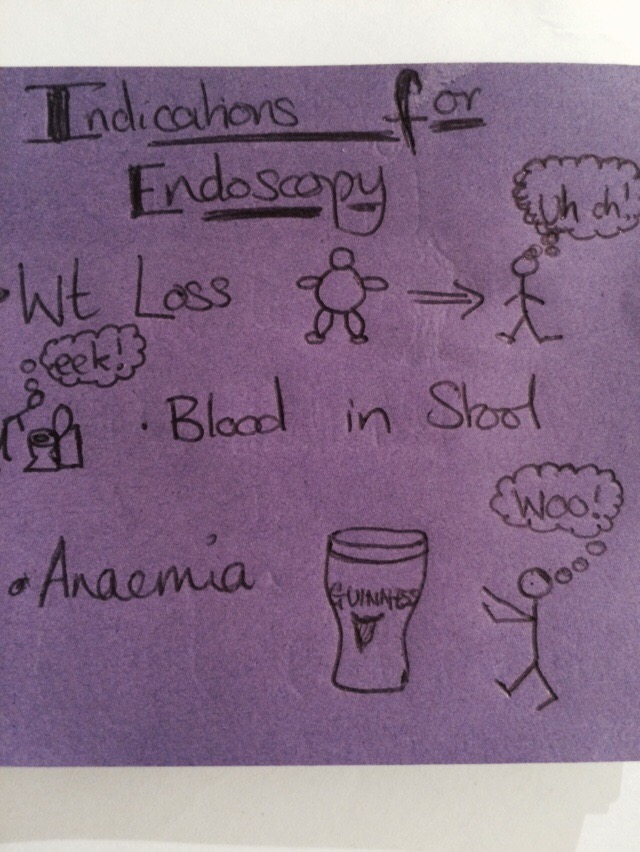 Indications for
Endoscopy
Uh oh!
• Wt Loss
eek!
• Blood in Stool
Woo!
• Anaemia
GUINNESS